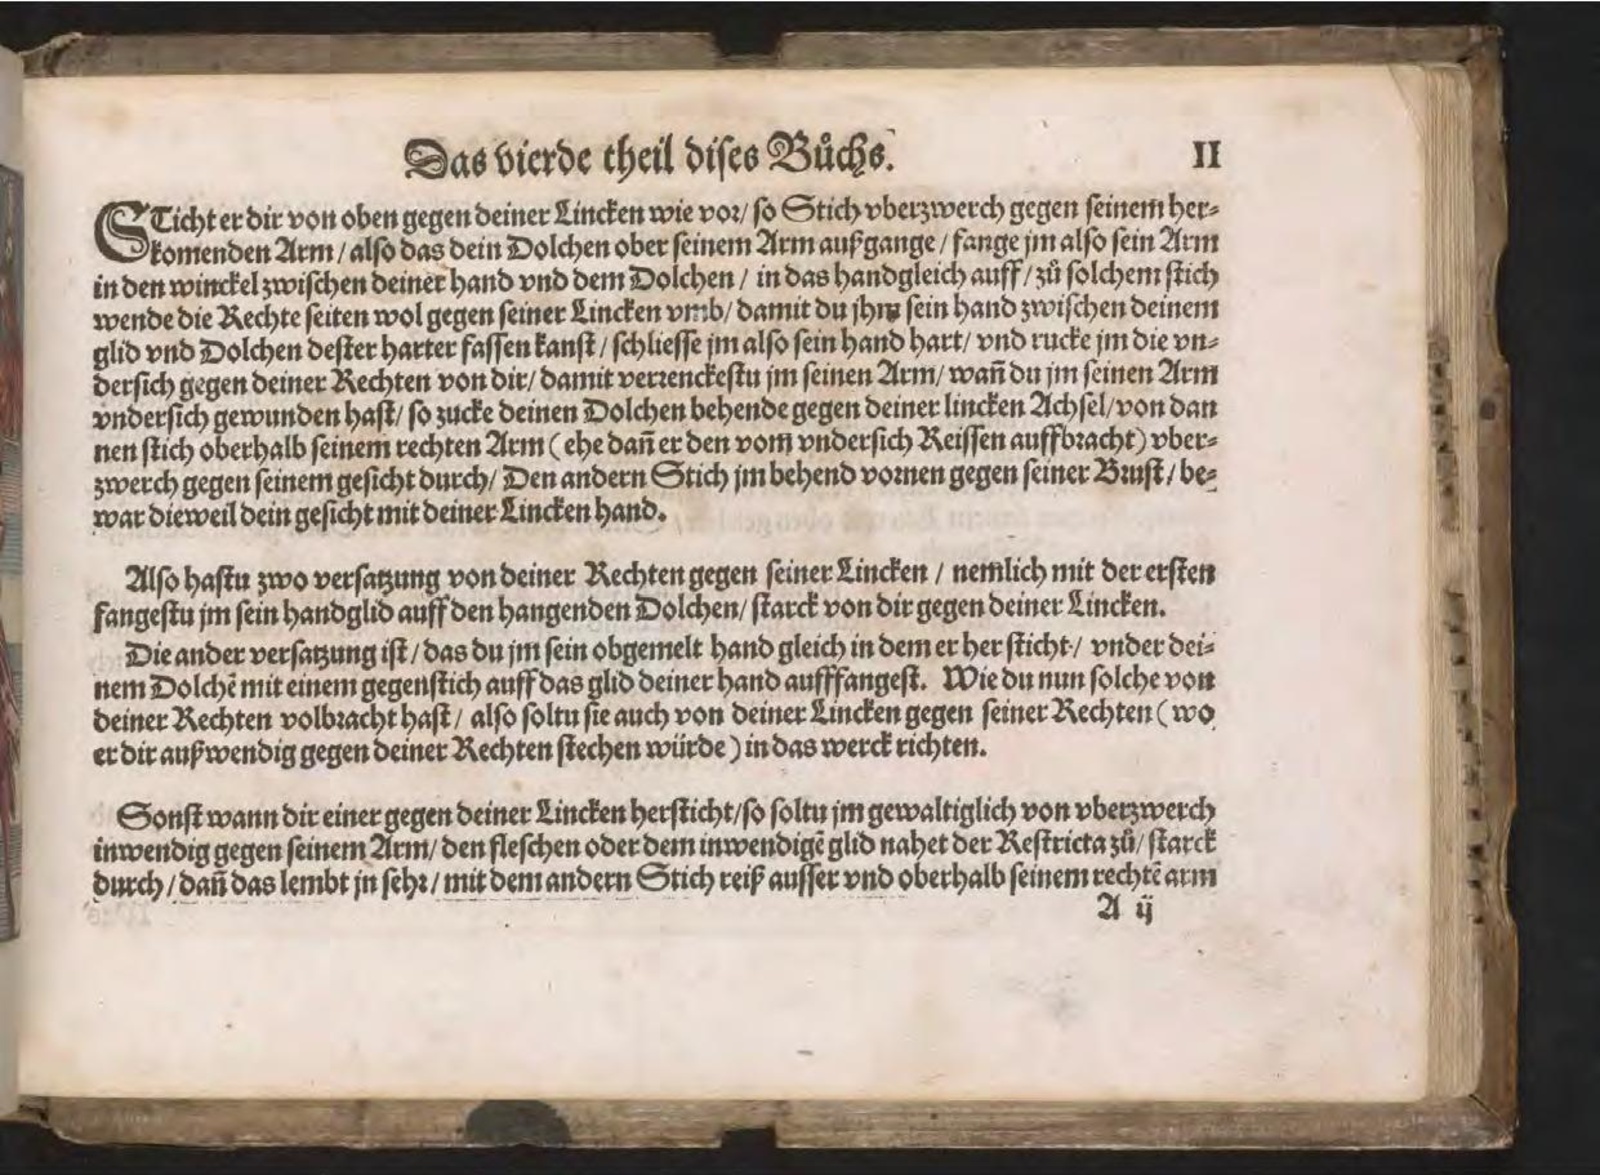 Das vierde theil dises Bůchs. II
STicht er dir von oben gegen deiner Lincken wie vor/ so Stich vberzwerch gegen seinem her-
komenden Arm / also das dein Dolchen ober seinem Arm außgange / fange jm also sein Arm
in den winckel zwischen deiner hand vnd dem Dolchen / in das handgleich auff / zů solchem stich
wende die Rechte seiten wol gegen seiner Lincken vmb/ damit du jhm sein hand zwischen deinem
glid vnd Dolchen dester harter fassen kanst / schliesse jm also sein hand hart/ vnd rucke jm die vn-
dersich gegen deiner Rechten von dir/ damit verrenckestu jm seinen Arm/ wañ du jm seinen Arm
vndersich gewunden hast/ so zucke deinen Dolchen behende gegen deiner lincken Achsel/ von dan
nen stich oberhalb seinem rechten Arm ( ehe dañ er den vom vndersich Reissen auffbracht) vber-
zwerch gegen seinem gesicht durch/ Den andern Stich jm behend vornen gegen seiner Brust / be-
war dieweil dein gesicht mit deiner Lincken hand.
Also hastu zwo versatzung von deiner Rechten gegen seiner Lincken / nemlich mit der ersten
fangestu jm sein handglid auff den hangenden Dolchen/ starck von dir gegen deiner Lincken.
Die ander versatzung ist / das du jm sein obgemelt hand gleich in dem er her sticht / vnder dei-
nem Dolchẽ mit einem gegenstich auff das glid deiner hand aufffangest. Wie du nun solche von
deiner Rechten volbracht hast / also soltu sie auch von deiner Lincken gegen seiner Rechten ( wo
er dir außwendig gegen deiner Rechten stechen würde ) in das werck richten.
Sonst wann dir einer gegen deiner Lincken hersticht/ so soltu jm gewaltiglich von vberzwerch
inwendig gegen seinem Arm/ den fleschen oder dem inwendigẽ glid nahet der Restricta zů/ starck
durch / dañ das lembt jn sehr / mit dem andern Stich reiß ausser vnd oberhalb seinem rechtẽ arm
A ij